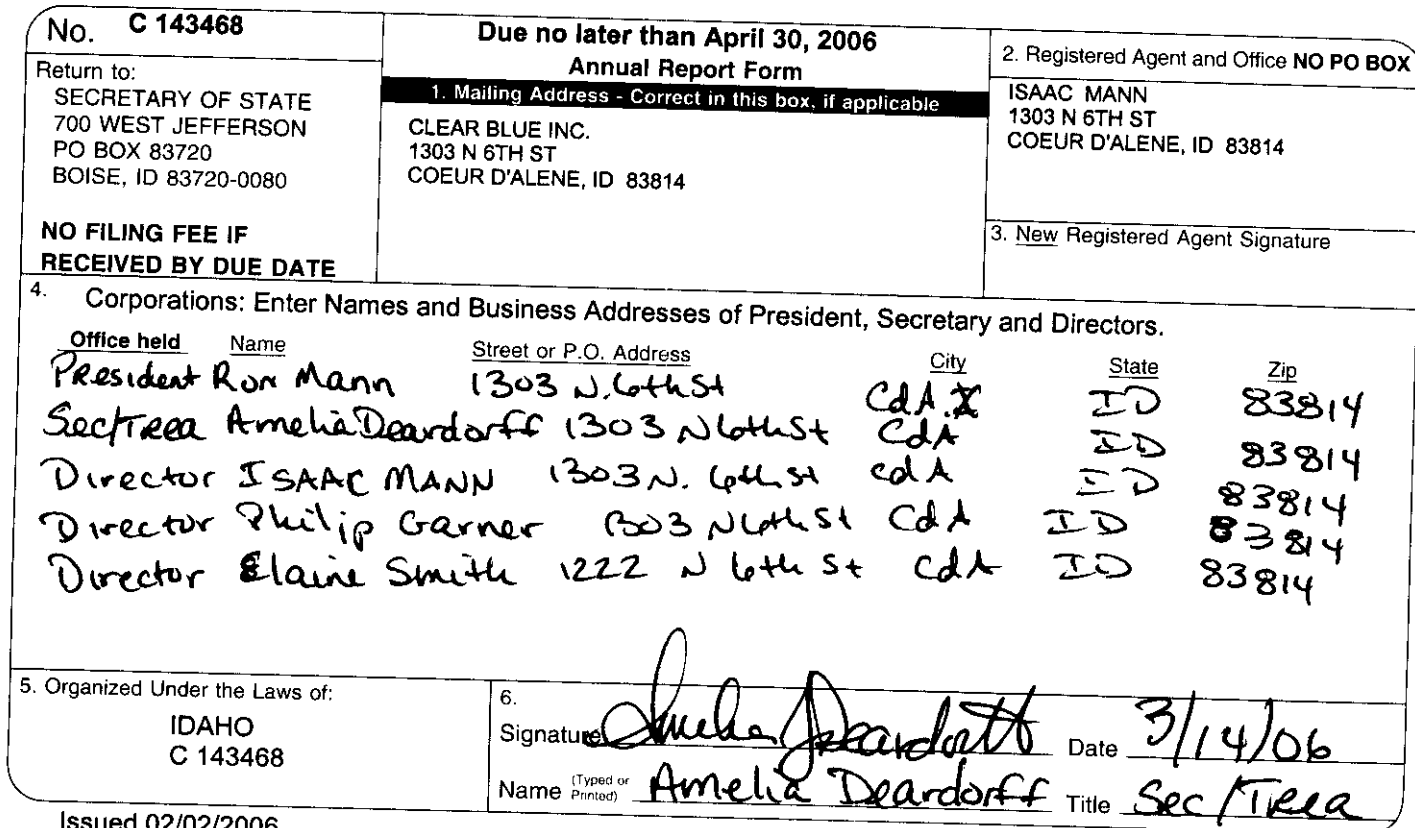 No. C 143468
Return to:
SECRETARY OF STATE
700 WEST JEFFERSON
PO BOX 83720
BOISE, ID 83720-0080
NO FILING FEE IF
RECEIVED BY DUE DATE
Due no later than April 30, 2006
Annual Report Form
1. Mailing Address - Correct in this box, if applicable
CLEAR BLUE INC.
1303 N 6TH ST
COEUR D'ALENE, ID 83814
2. Registered Agent and Office NO PO BOX
ISAAC MANN
1303 N 6TH ST
COEUR D'ALENE, ID 83814
3. New Registered Agent Signature
4. Corporations: Enter Names and Business Addresses of President, Secretary and Directors.
Office held Name Street or P.O. Address City State Zip
President Ron Mann 1303 N. 6th St CdA. ID 83814
Sec/Trea Amelia Deardorff 1303 N 6th St CdA ID 83814
Director ISAAC MANN 1303 N. 6th St CdA ID 83814
Director Philip Garner 1303 N 6th St CdA ID 83814
Director Elaine Smith 1222 N 6th St CdA ID 83814
5. Organized Under the Laws of:
IDAHO
C 143468
6.
Signature Amelia Deardorff Date 3/14/06
Name (Typed or Printed) Amelia Deardorff Title Sec/Trea
Issued 02/02/2006